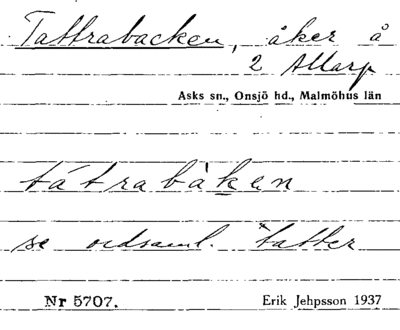 Tattrabacken, åker å
2 Allarp
Asks sn., Onsjö hd., Malmöhus län
tátrabàken
se ordsaml. *tatter
Nr 5707. Erik Jehpsson 1937